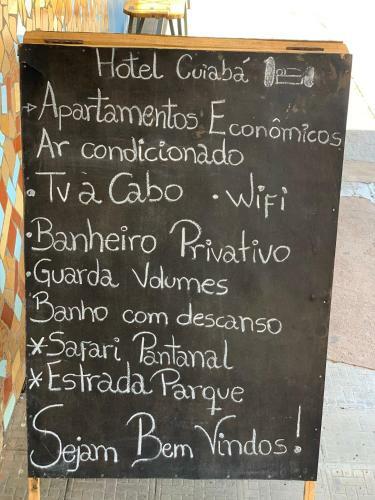 Hotel Cuiabá
→Apartamentos Econômicos
Ar condicionado
.Tv à Cabo .Wifi
.Banheiro Privativo
.Guarda Volumes
Banho com descanso
*Safari Pantanal
*Estrada Parque
Sejam Bem Vindos!